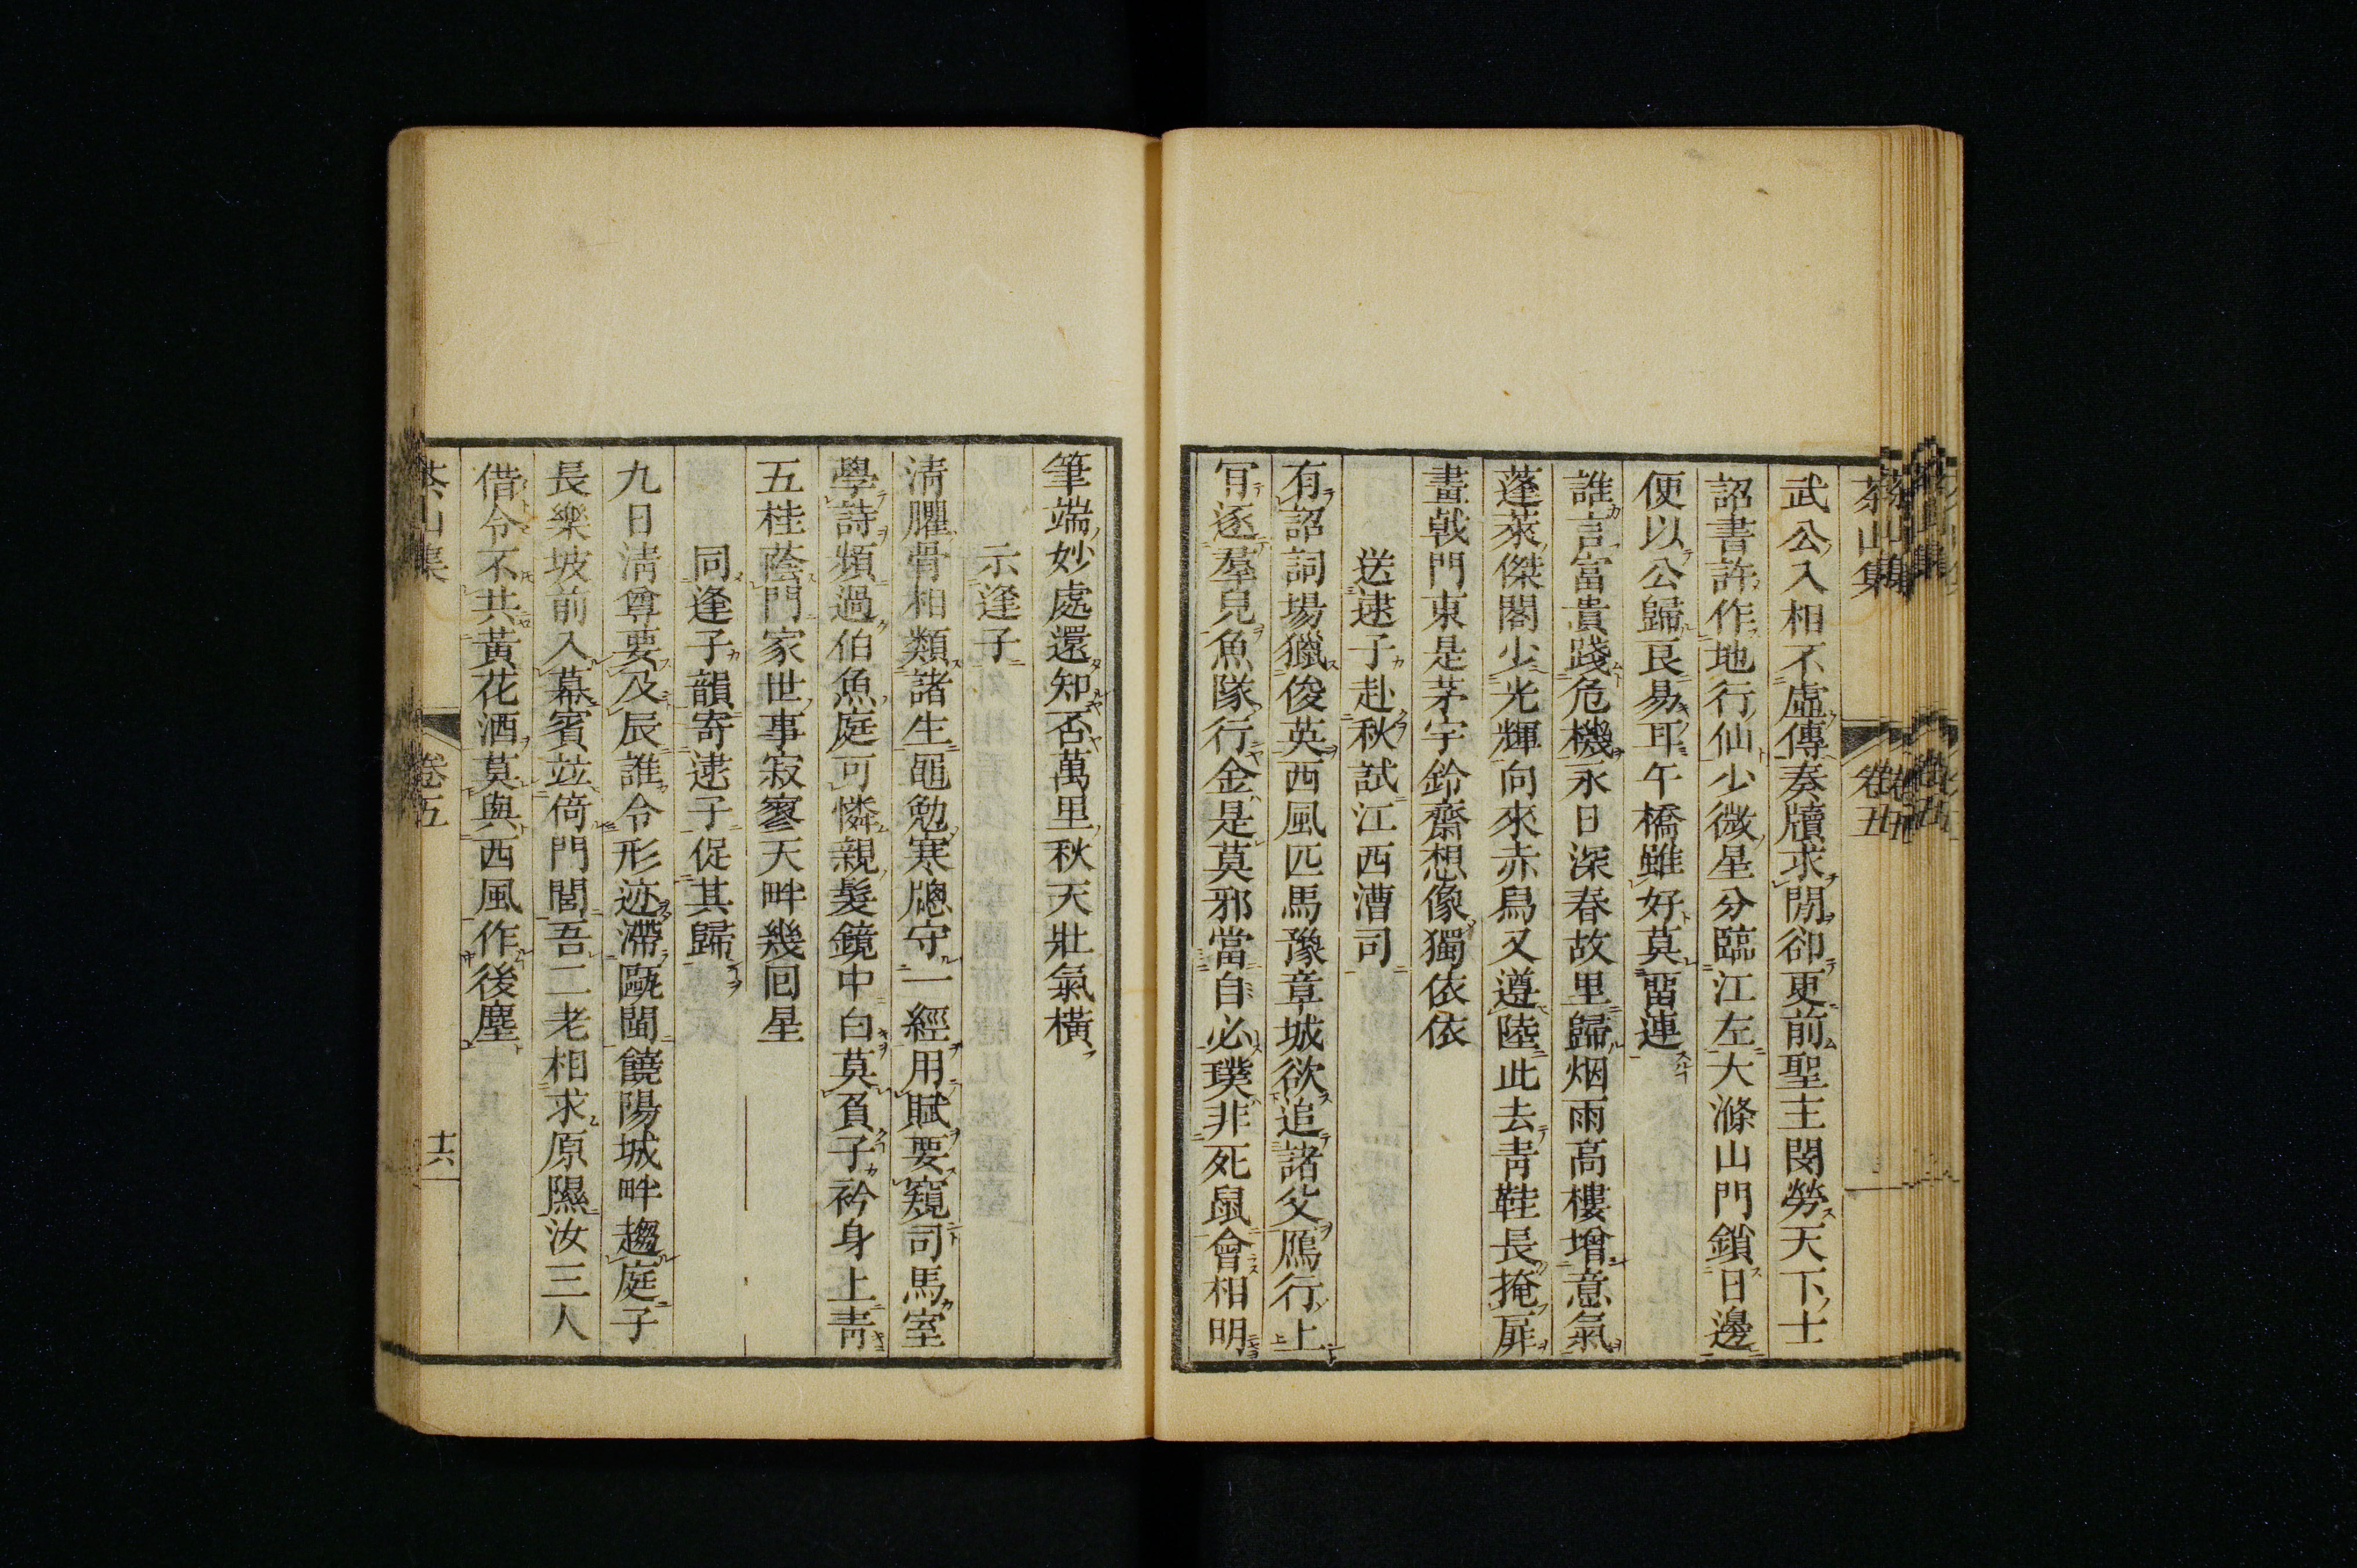 茶山集 卷五
武公入相不虛傳奏牘求閒卻更前聖主閔勞天下士
詔書許作地行仙少微星分臨江左大滌山門鎖日邊
便以公歸良易耳午橋雖好莫畱連
誰言富貴踐危機永日深春故里歸烟雨高樓增意氣
蓬萊傑閣少光輝向來赤舄又遵陸此去靑鞋長掩扉
畫戟門東是茅宇鈴齋想像獨依依
送逮子赴秋試江西漕司
有詔詞場獵俊英西風匹馬豫章城欲追諸父鴈行上
肎逐羣兒魚隊行金是莫邪當自必璞非死鼠會相明
筆端妙處還知否萬里秋天壯氣橫
示逢子
淸臞骨相類諸生黽勉寒牕守一經用賦要窺司馬室
學詩頻過伯魚庭可憐親髮鏡中白莫負子衿身上靑
五桂蔭門家世事寂寥天畔幾回星
同逢子韻寄逮子促其歸
九日淸尊要及辰誰令形迹滯甌閩饒陽城畔趨庭子
長樂坡前入幕賓竝倚門閭吾二老相求原隰汝三人
借令不共黃花酒莫與西風作後塵
茶山集 卷五 十六